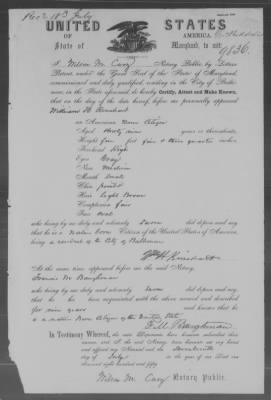 Recd 18th July
UNITED STATES
OF AMERICA,
State of Maryland, to wit:
9836.
I, Wilson M. Cary Notary Public, by Letters
Patent, under the Great Seal of the State of Maryland,
commissioned and duly qualified, residing in the City of Balti-
more, in the State aforesaid, do hereby Certify, Attest and Make Known,
that on the day of the date hereof, before me personally appeared
William H. Rinehart
an American Born Citizen
Aged thirty nine years or thereabouts,
Height five feet and three quarter inches
Forehead High
Eyes Gray
Nose Medium
Mouth small
Chin pointed
Hair Light Brown
Complexion fair
Face oval
who being by me duly and solemnly sworn did depose and say
that he is a native born Citizen of the United States of America,
being a resident of the City of Baltimore
Wm H. Rinehart
At the same time appeared before me the said Notary,
Francis M. Baughman
who being by me duly and solemnly sworn did depose and say
that he has been acquainted with the above named and described
for nine years and knows that he
is a native Born Citizen of the United States
F. M. Baughman
In Testimony Whereof, the said Deponents have hereunto subscribed their
names, and I the said Notary, have hereunto set my hand
and affixed my Notarial seal the seventeenth
day of July in the year of our Lord one
thousand eight hundred and fifty
Wilson M. Cary Notary Public.